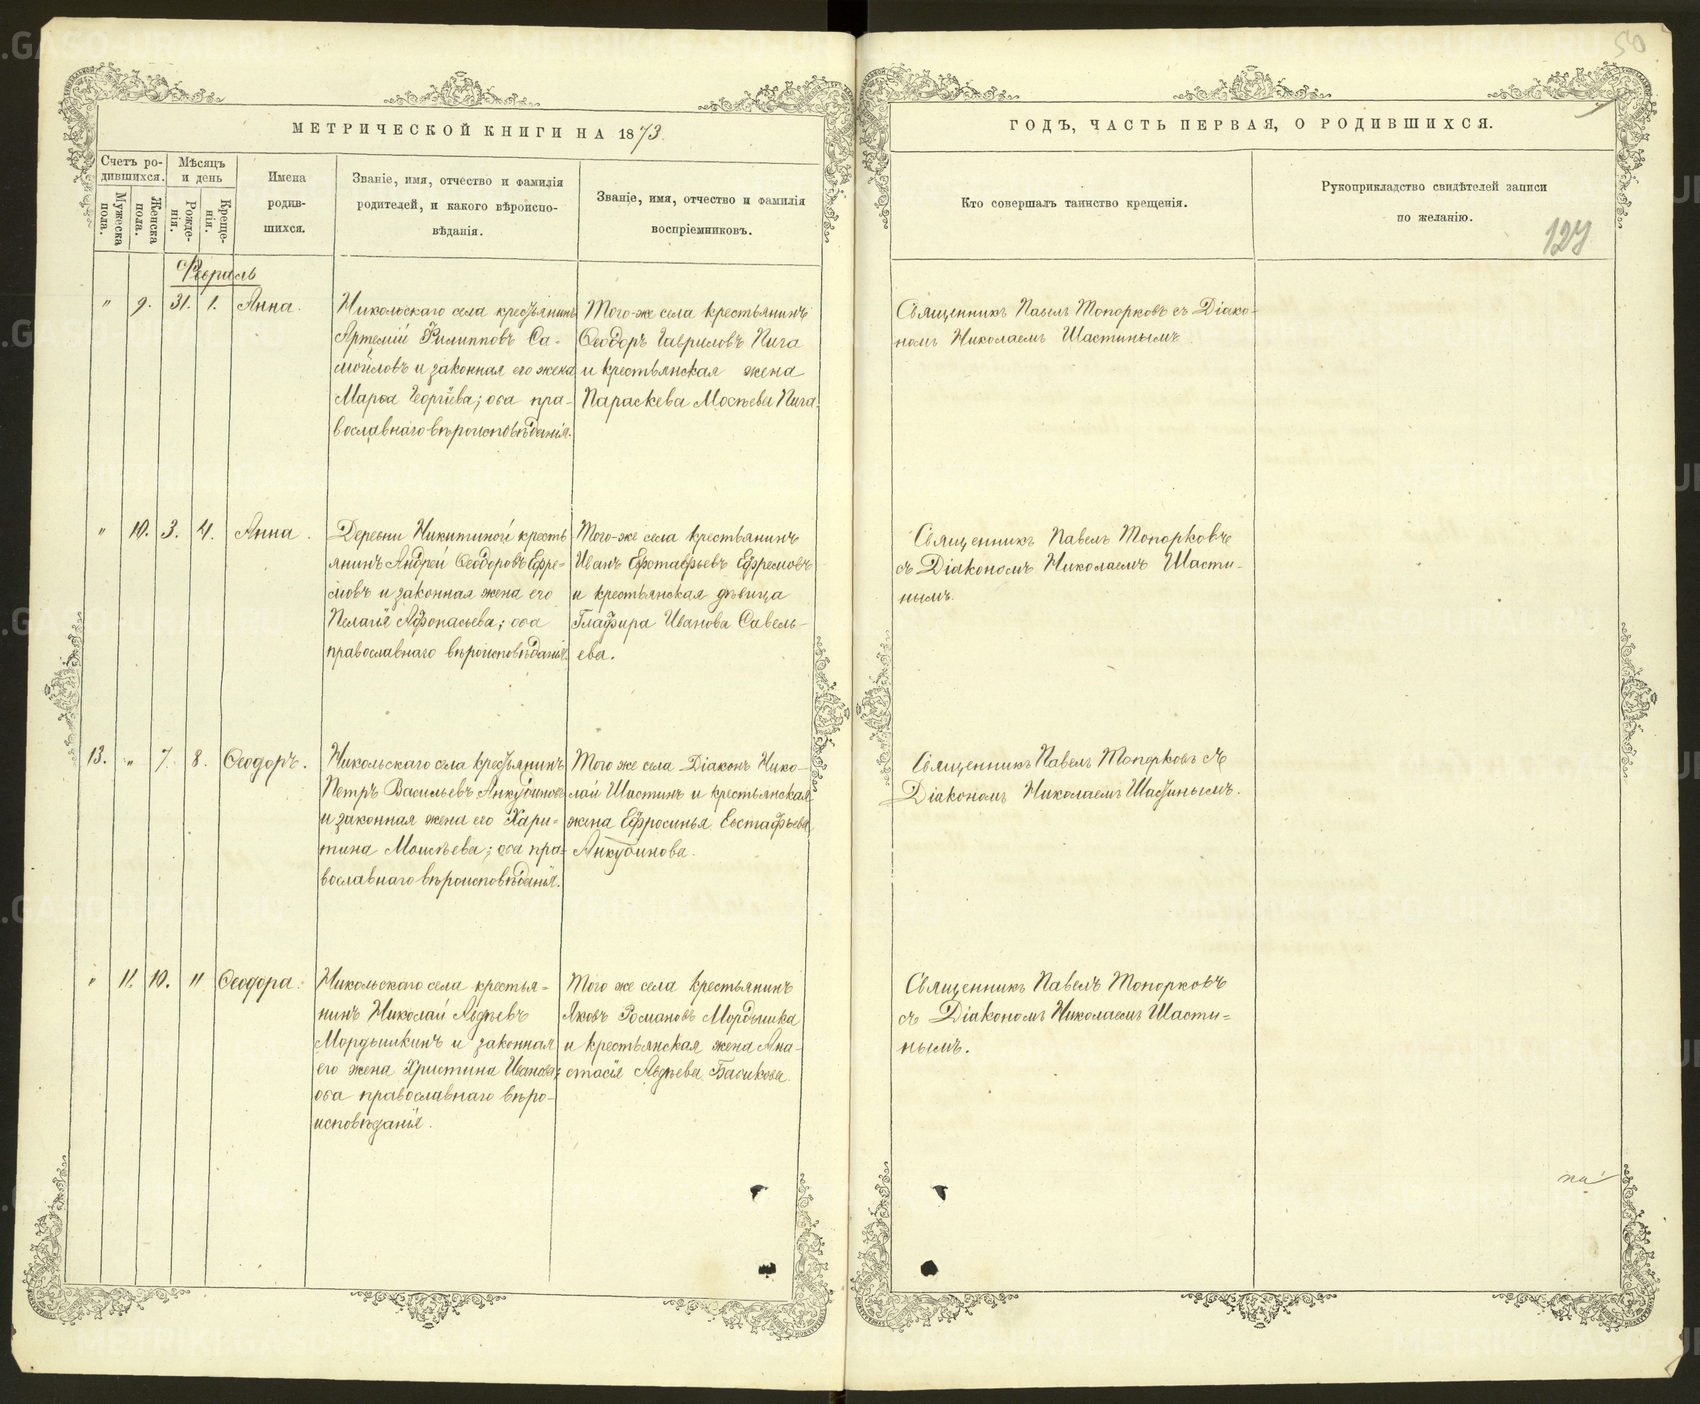 50
МЕТРИЧЕСКОЙ КНИГИ НА 1873
ГОДЪ, ЧАСТЬ ПЕРВАЯ, О РОДИВШИХСЯ.
Счетъ ро-
дившихся.
Мужеска
пола.
Женска
пола.
Мѣсяцъ
и день
Рожде-
нія.
Креще-
нія.
Имена
родив-
шихся.
Званіе, имя, отчество и фамилія
родителей, и какого вѣроиспо-
вѣданія.
Званіе, имя, отчество и фамилія
воспріемниковъ.
Кто совершалъ таинство крещенія.
Рукоприкладство свидѣтелей записи
по желанію.
127
Февраль
" 9. 31. 1. Анна.
Никольскаго села крестьянинъ
Артемій Филипповъ Са-
мойловъ и законная его жена
Марѳа Георгіева; оба пра-
вославнаго вѣроисповѣданія.
Того-же села крестьянинъ
Ѳеодоръ Гавриловъ Пига
и крестьянская жена
Параскева Мосѣева Пига.
Священникъ Павелъ Топорковъ съ Діако-
номъ Николаемъ Шастинымъ
" 10. 3. 4. Анна.
Деревни Никитиной кресть
янинъ Андрей Ѳеодоровъ Ефре-
мовъ и законная жена его
Пелагія Афонасьева; оба
православнаго вѣроисповѣданія.
Того-же села крестьянинъ
Иванъ Ефстафьевъ Ефремовъ
и крестьянская дѣвица
Глафира Иванова Савель-
ева.
Священникъ Павелъ Топорковъ
съ Діакономъ Николаемъ Шасти-
нымъ.
13. " 7. 8. Ѳеодоръ.
Никольскаго села крестьянинъ
Петръ Васильевъ Анкудиновъ
и законная жена его Хари-
тина Моисѣева; оба пра-
вославнаго вѣроисповѣданія.
Того же села Діаконъ Нико-
лай Шастинъ и крестьянская
жена Ефросинья Евстафьева
Анкудинова.
Священникъ Павелъ Топорковъ съ
Діакономъ Николаемъ Шастинымъ.
" 11. 10. 11 Ѳеодора.
Никольскаго села крестья-
нинъ Николай Авдѣевъ
Мордышкинъ и законная
его жена Христина Иванова;
оба православнаго вѣро-
исповѣданія.
Того же села крестьянинъ
Яковъ Романовъ Мордышка
и крестьянская жена Ана-
стасія Авдѣева Басикова.
Священникъ Павелъ Топорковъ
съ Діакономъ Николаемъ Шасти-
нымъ.